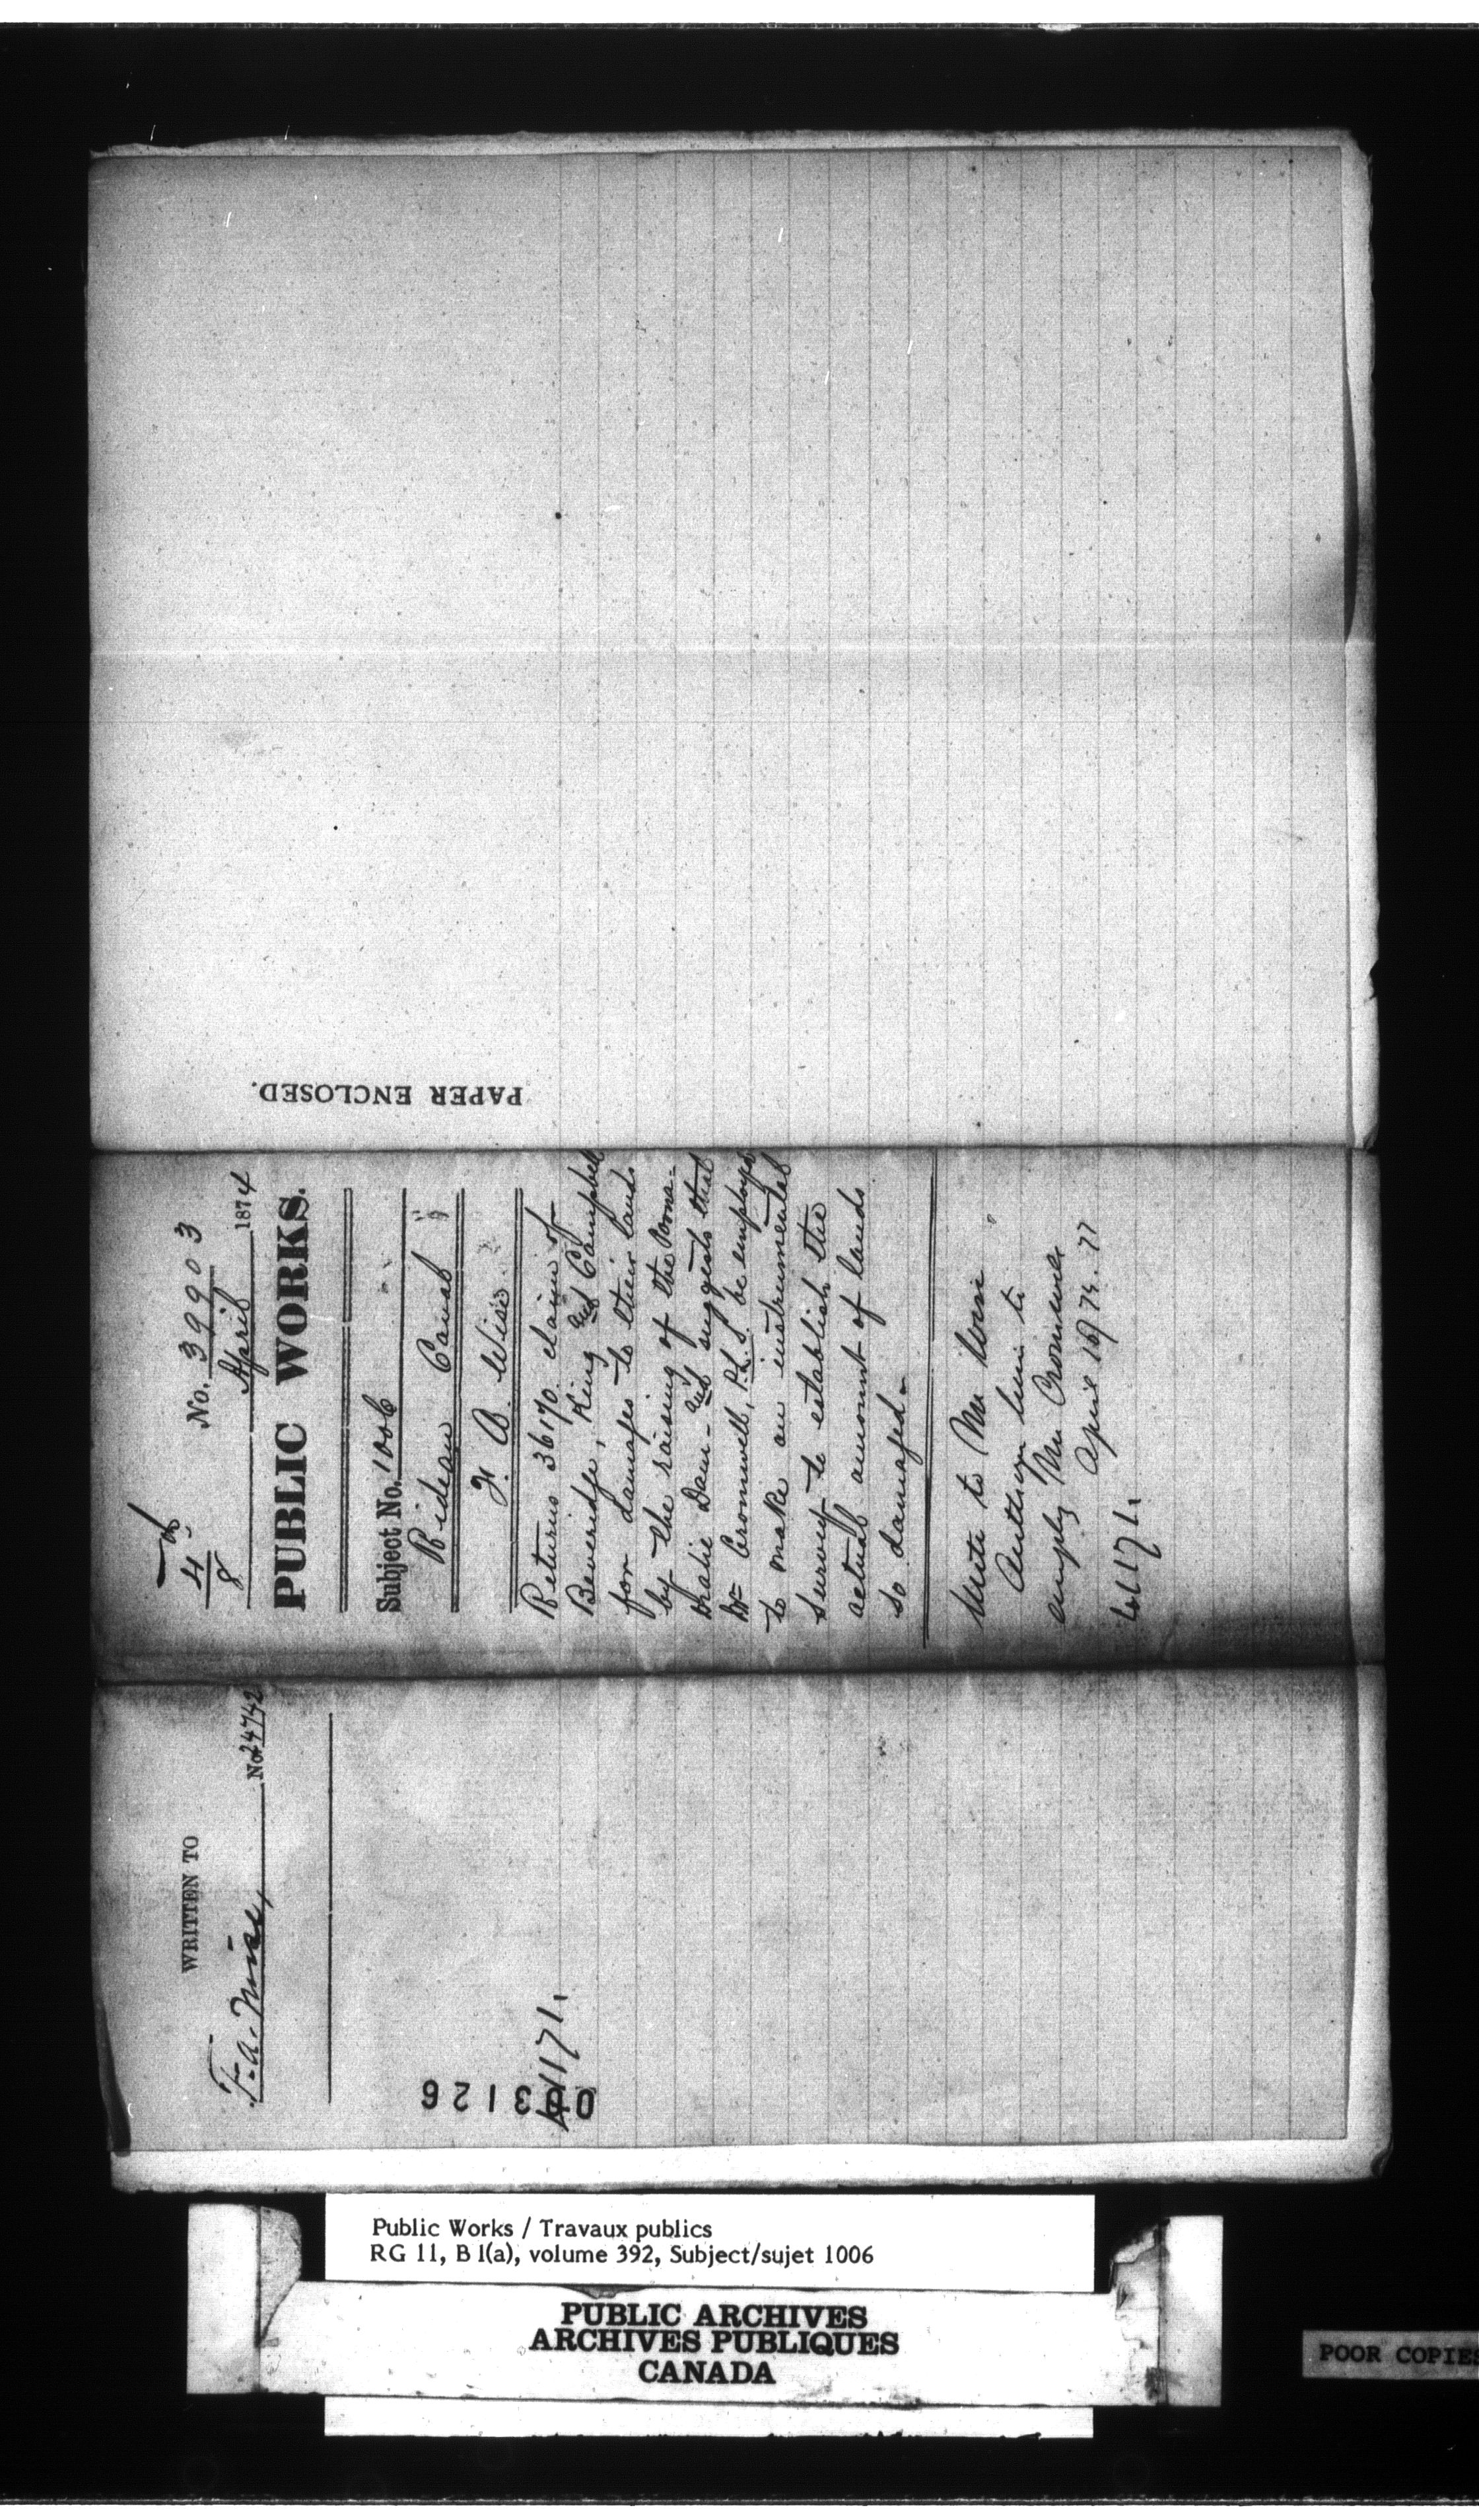 4
8
No. 39903
April 1874
PUBLIC WORKS.
Subject No. 1006
Rideau Canal
F. A. Wise
Returns 36170. claim of
Beveridge, King and Campbell
for damages to their lands
by the raising of the Bona-
Dam - and suggests that
Mr Cromwell, P.L.S. be employed
to make an instrumental
survey to establish the
actual amount of lands
so damaged -
Write to Mr Wise
Authorize him to
employ Mr Cromwell
April 74.
PAPER ENCLOSED.
WRITTEN TO
No 24742
F. A. Wise,
3126
Public Works / Travaux publics
RG 11, B1(a), volume 392, Subject/sujet 1006
PUBLIC ARCHIVES
ARCHIVES PUBLIQUES
CANADA
POOR COPIES